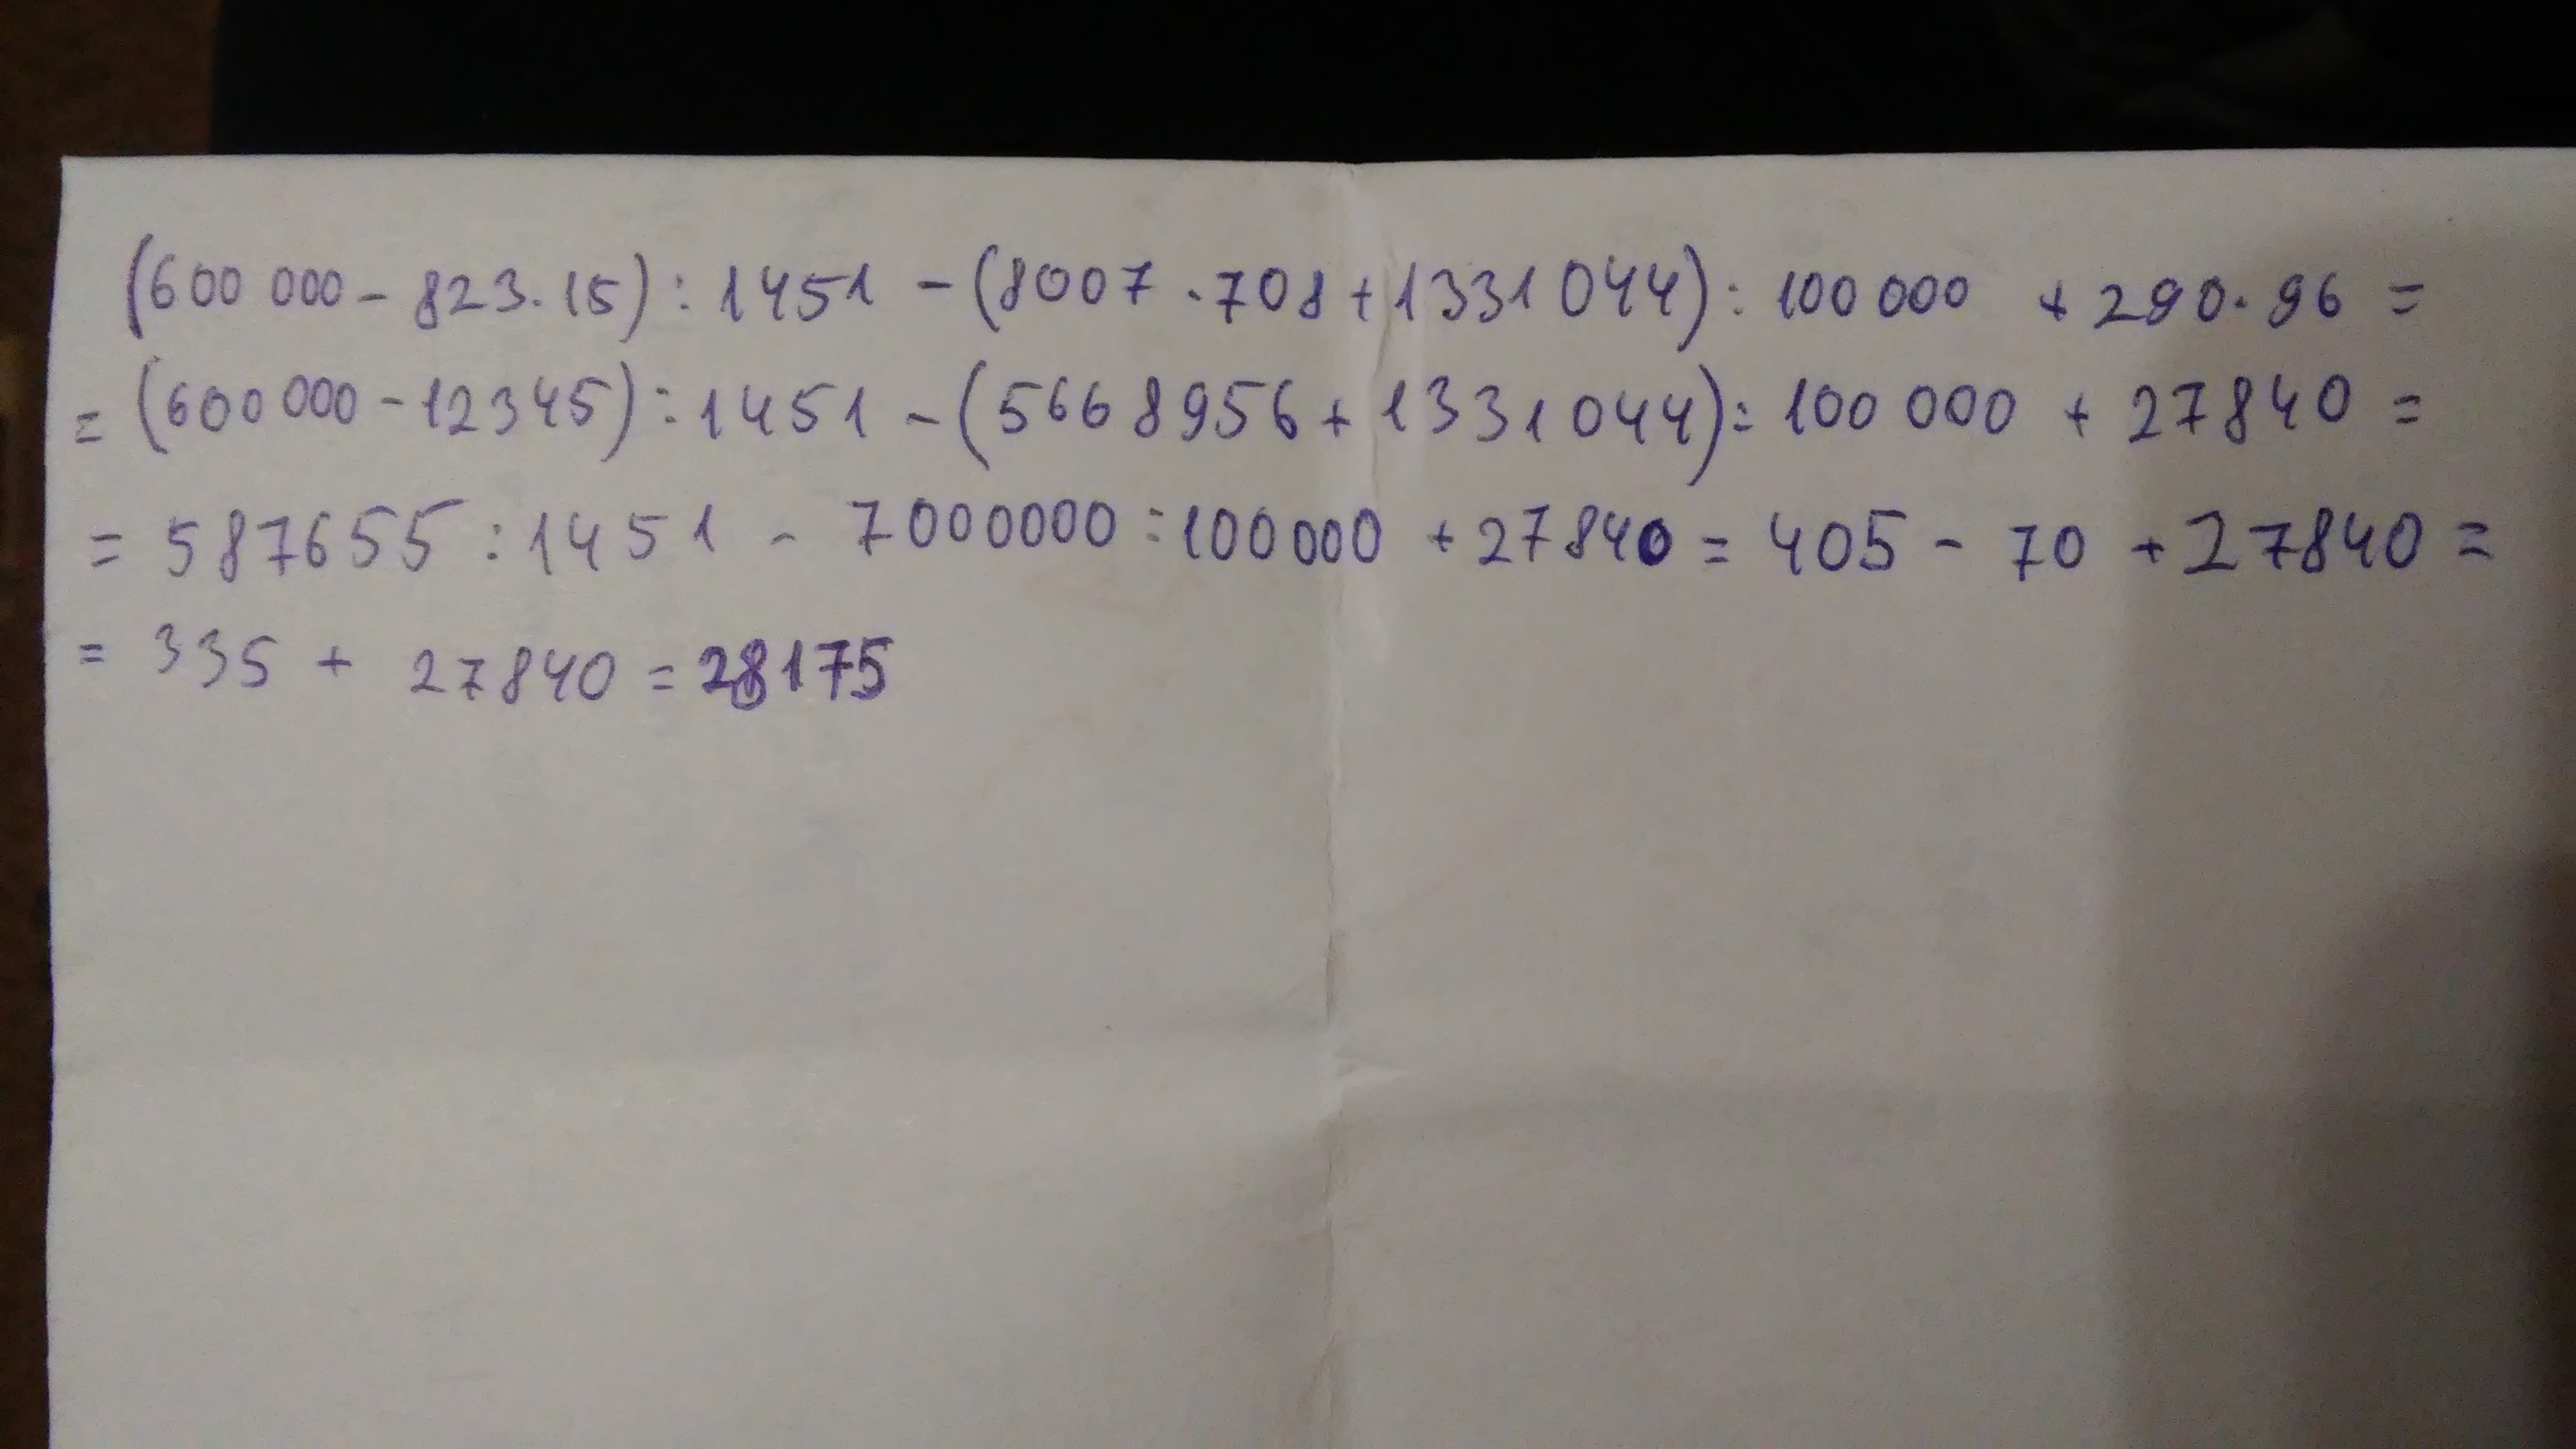 (600 000 - 823 · 15) : 1451 - (8007 · 708 + 1331 044) : 100 000 + 290 · 96 =
= (600 000 - 12345) : 1451 - (5668956 + 1331 044) : 100 000 + 27840 =
= 587655 : 1451 - 7000000 : 100 000 + 27840 = 405 - 70 + 27840 =
= 335 + 27840 = 28175